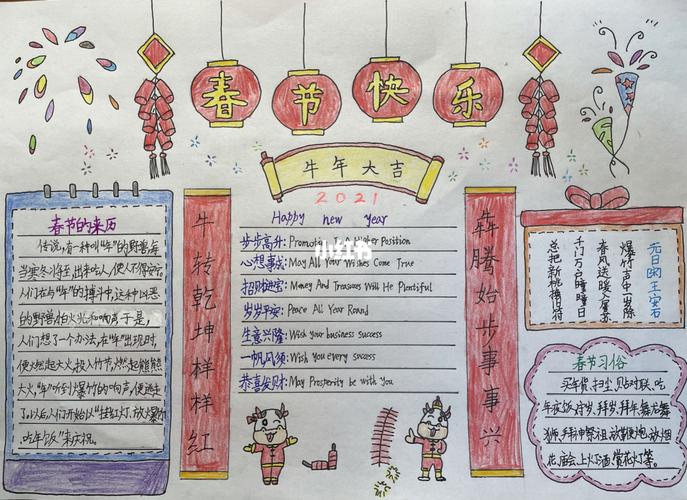 春节快乐
牛年大吉
2021
Happy new year
步步高升: Promoting To A Higher Position
心想事成: May All Your Wishes Come True
招财进宝: Money And Treasures Will Be Plentiful
岁岁平安: Peace All Year Round
生意兴隆: Wish your business success
一帆风顺: Wish You every success
恭喜发财: May Prosperity be with you
小红书
牛转乾坤样样红
犇腾始步事事兴
春节的来历
传说,有一种叫"年"的野兽,每
当寒冬将至,出来吃人,使人不得安宁,
人们在与"年"的搏斗中,这种凶恶
的野兽怕火光和响声,于是,
人们想了一个办法,在"年"出现时,
便燃起大火,投入竹节,燃起熊熊
大火,"年"听到爆竹的响声,便逃走
了,以后人们开始以"挂红灯,放爆竹,
吃年饭"来庆祝。
元日 [宋]王安石
爆竹声中一岁除
春风送暖入屠苏
千门万户曈曈日
总把新桃换旧符
春节习俗
买年货,扫尘,贴对联,吃
年夜饭,守岁,拜岁,拜年,舞龙舞
狮,拜神祭祖,放鞭炮,放烟
花,庙会,上灯酒,赏花灯等。